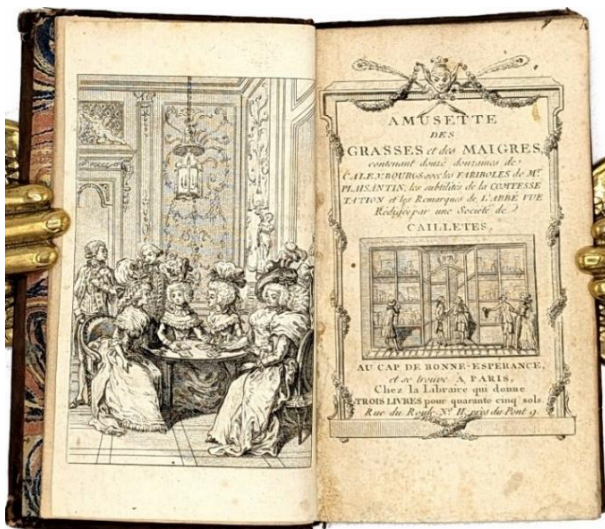 AMUSETTE
DES
GRASSES et des MAIGRES,
contenant douze douzaines de
CALEMBOURGS avec les FARIBOLES de Mr.
PLAISANTIN, les subtilités de la COMTESSE
TATION et les Remarques de L'ABBÉ VUE
Rédigée par une Société de
CAILLETES,
AU CAP DE BONNE-ESPERANCE,
et se trouve À PARIS,
Chez la Libraire qui donne
TROIS LIVRES pour quarante cinq sols.
Rue du Roule No. II, près du Pont 9.